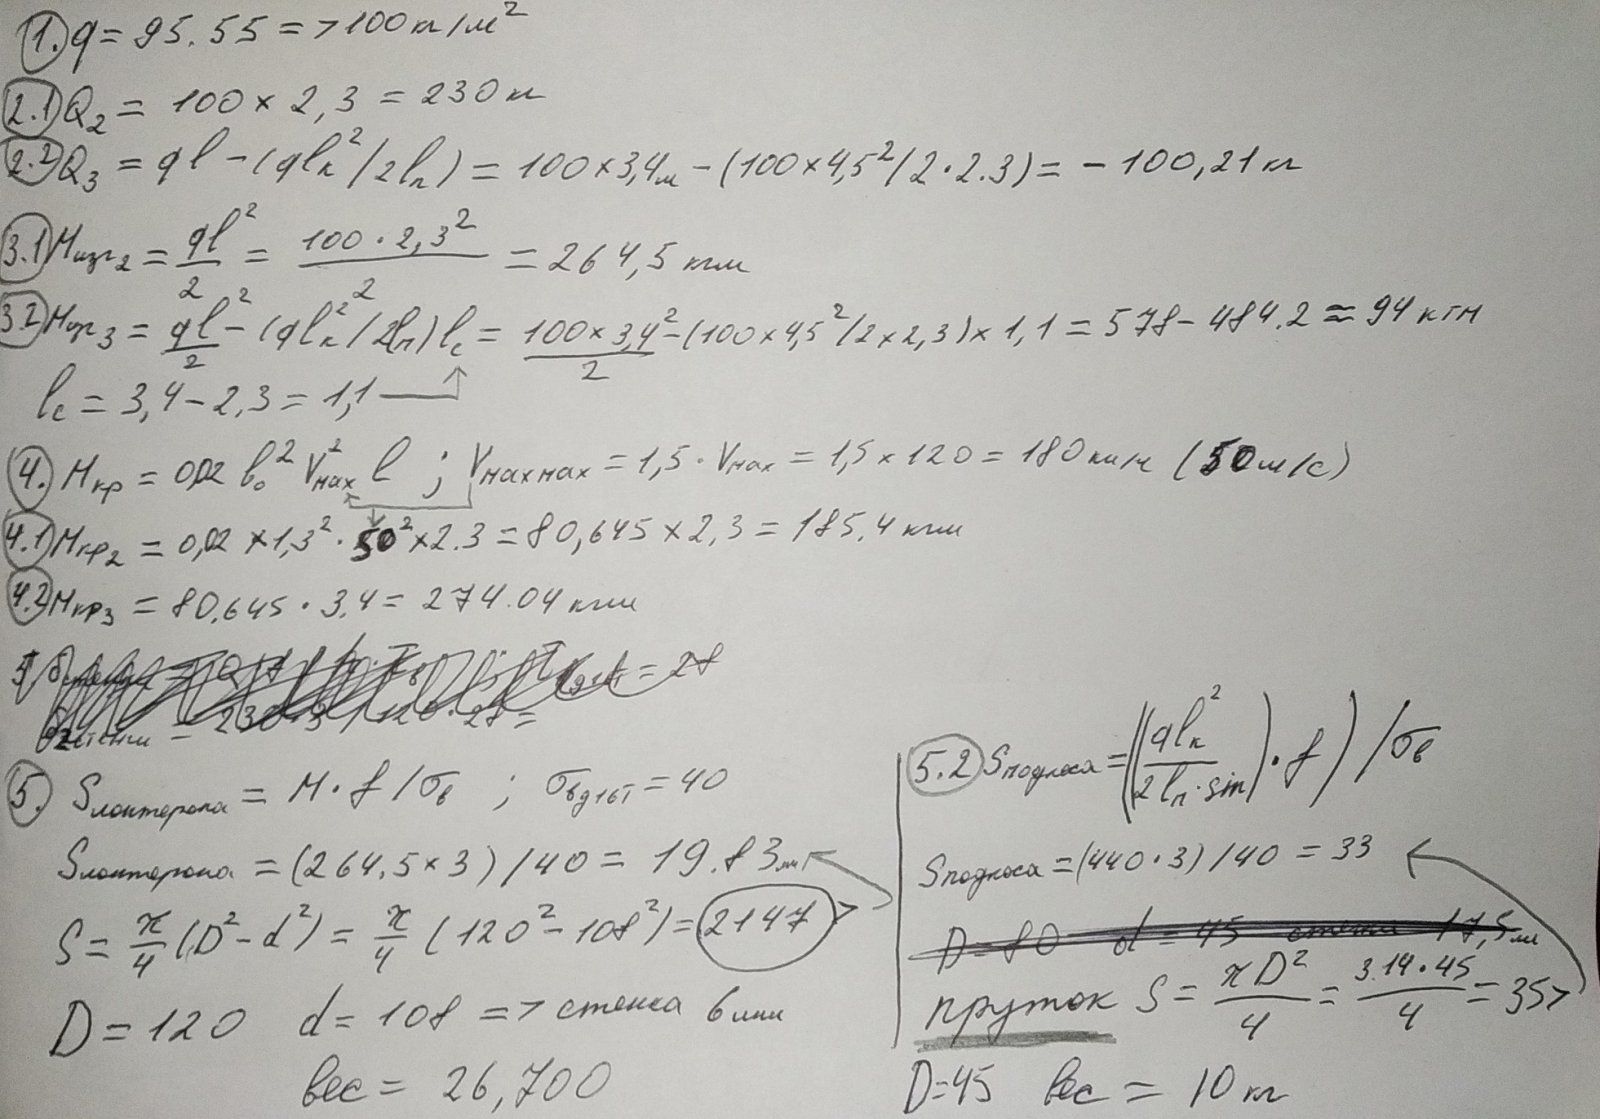 1. q = 95.55 => 100 кг/м²
2.1 Q₂ = 100 × 2,3 = 230 кг
2.2 Q₃ = ql - (qlₖ²/2lₙ) = 100×3,4м - (100×4,5²/2·2.3) = - 100,21 кг
3.1 Mизг₂ = ql²/2 = 100·2,3²/2 = 264,5 кгм
3.2 Mизг₃ = ql²/2 - (qlₖ²/2lₙ)lc = 100×3,4²/2 - (100×4,5²/2×2,3)×1,1 = 578 - 484.2 ≈ 94 кгм
lc = 3,4 - 2,3 = 1,1
4. Mкр = 0,02 b₀² V²мах l ; Vмахмах = 1,5 · Vмах = 1,5 × 120 = 180 км/ч (50 м/с)
4.1 Mкр₂ = 0,02 × 1,3² · 50² × 2.3 = 80,645 × 2,3 = 185,4 кгм
4.2 Mкр₃ = 80,645 · 3,4 = 274.04 кгм
= 28
5. Sлонжерона = M · f / σв ; σвд16т = 40
Sлонжерона = (264,5 × 3) / 40 = 19.83 мм
S = π/4 (D² - d²) = π/4 (120² - 108²) = 2147 >
D = 120 d = 108 => стенка 6 мм
вес = 26,700
5.2 Sподкоса = ((qlₖ²/2lₙ·sin) · f) / σв
Sподкоса = (440·3) / 40 = 33
D = 80 d = 45 стенки 17,5 мм
пруток S = πD²/4 = 3.14·45/4 = 35 >
D=45 вес = 10 кг